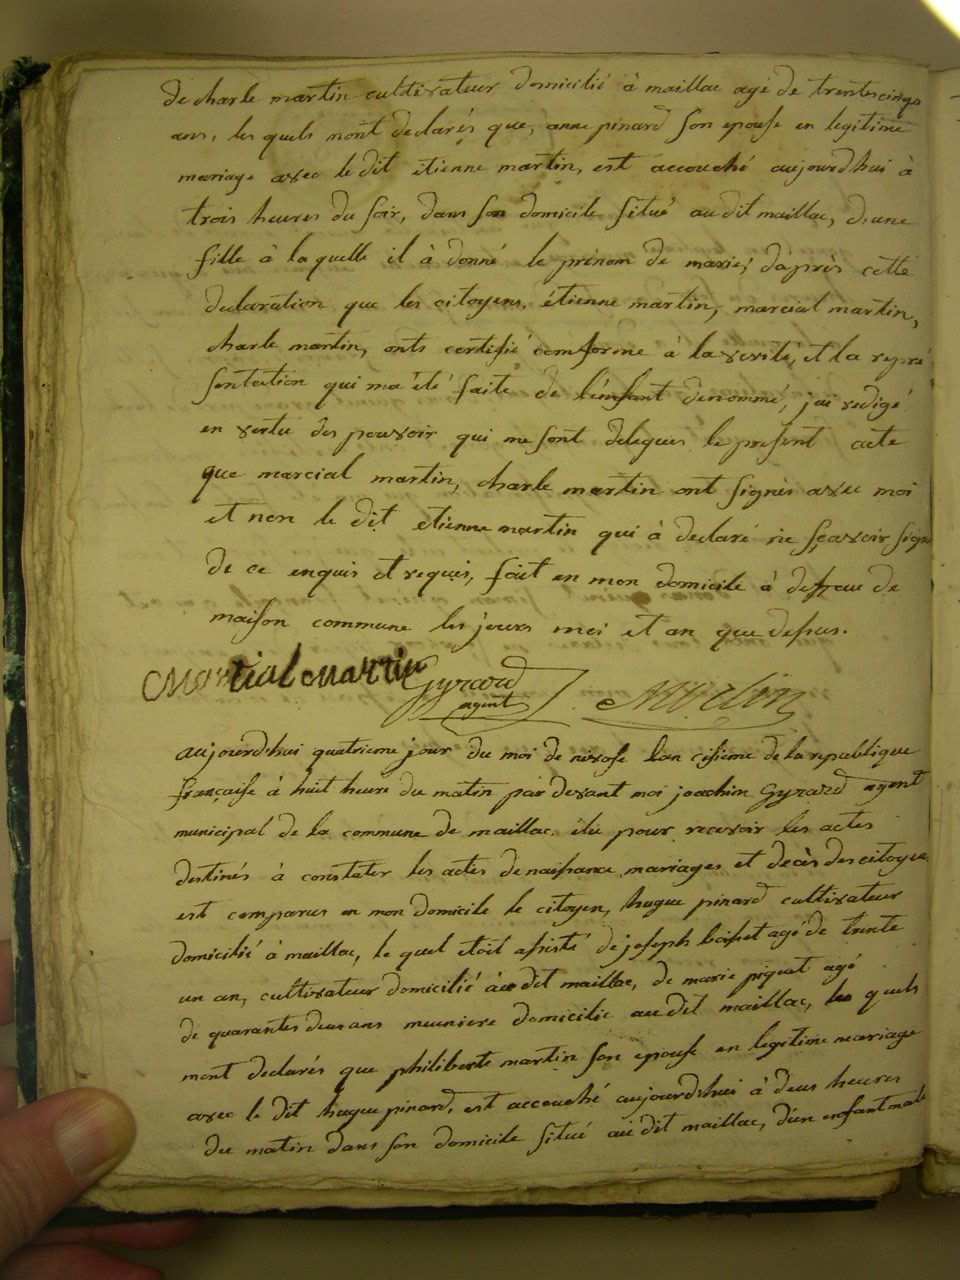 de charle martin cultivateur domicilié à maillac agé de trentescinqs
ans, les quels mont declarés que, anne pinard son epouse en legitime
mariage avec le dit etienne martin, est accouché aujourdhui à
trois heures du soir, dans son domicile situé audit maillac, d'une
fille à laquelle il à donné le prénom de marie; d'après cette
declaration que les citoyens, étienne martin, marcial martin,
charle martin, onts certifié comforme à la verité, et la repré
sentation qui ma été faite de l'enfant denommé, jai redigé
en vertu des pouvoir qui me sont delegues le présent acte
que marcial martin, charle martin ont signés avec moi
et non le dit etienne martin qui à declaré ne sçavoir signe
de ce enquis et requis, fait en mon domicile à defaue de
maison commune les jours moi et an que dessus.
Martial Martin Gyrard
agent
aujourdhui quatrieme jour du moi de nivose lan cisieme de la republique
française à huit heure du matin pardevant moi joachim Gyrard agent
municipal de la commune de maillac élu pour recevoir les actes
destinés à constater les actes de naissance mariages et decès des citoyen
est comparus en mon domicile le citoyen, hugue pinard cultivateur
domicilié à maillac, le quel etoit assisté de joseph boisset agé de trente
un an, cultivateur domicilié au dit maillac, de marie piquet agé
de quarantes deusans meuniere domicilie audit maillac, les quels
mont declarés que philiberte martin son epouse en legitime mariage
avec le dit hugue pinard, est accouché aujourdshui à deus heures
du matin dans son domicile situé au dit maillac, d'un enfant male